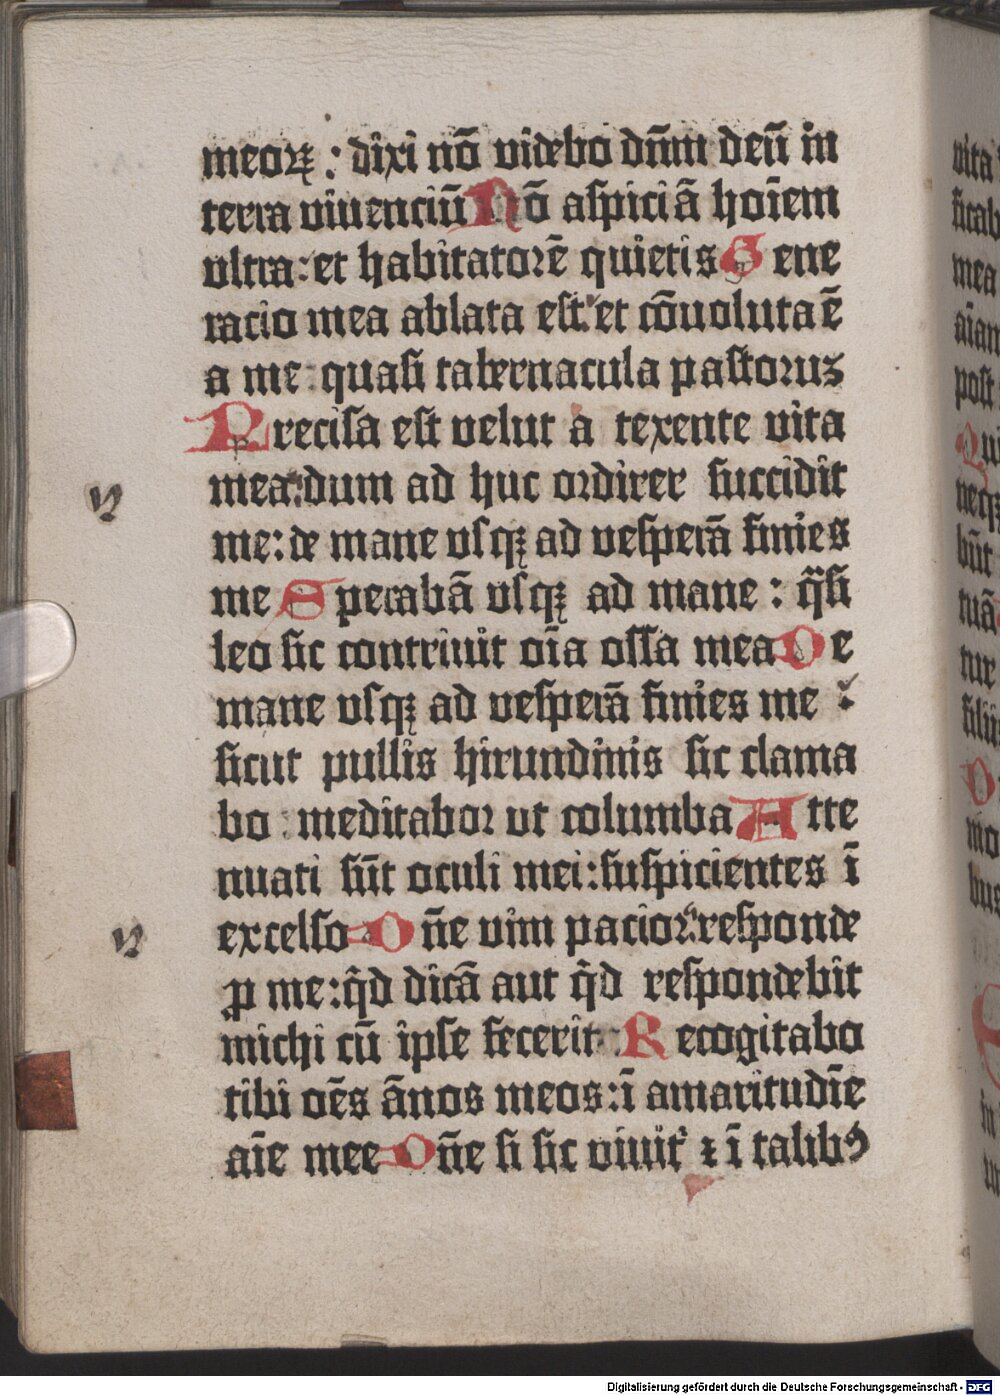 meoꝝ : dixi nō videbo dn̄m deū in
terra viuenciū Nō aspiciā hoīem
vltra : et habitatorē quietis Gene
racio mea ablata est : et cōuoluta ē
a me : quasi tabernacula pastorus
Precisa est velut a texente vita
mea : dum ad huc ordirer succidit
me : de mane vsqꝫ ad vesperā finies
me Sperabā vsqꝫ ad mane : q̄si
leo sic contriuit oīa ossa mea De
mane vsqꝫ ad vesperā finies me :
sicut pullis hirundinis sic clama
bo : meditabor ut columba Atte
nuati sūt oculi mei : suspicientes ī
excelso Dn̄e vim pacior : responde
ꝓ me : qͥd dicā aut qͥd respondebit
michi cū ipse fecerit : Recogitabo
tibi oēs ānos meos : ī amaritudīe
aīe mee Dn̄e si sic viuitᷣ ⁊ ī talibꝰ
vita
ficab
mea
aīan
post
Qui
neqꝫ
būt
tuā
tur
filii
D
mo
bus
in
Digitalisierung gefördert durch die Deutsche Forschungsgemeinschaft - DFG